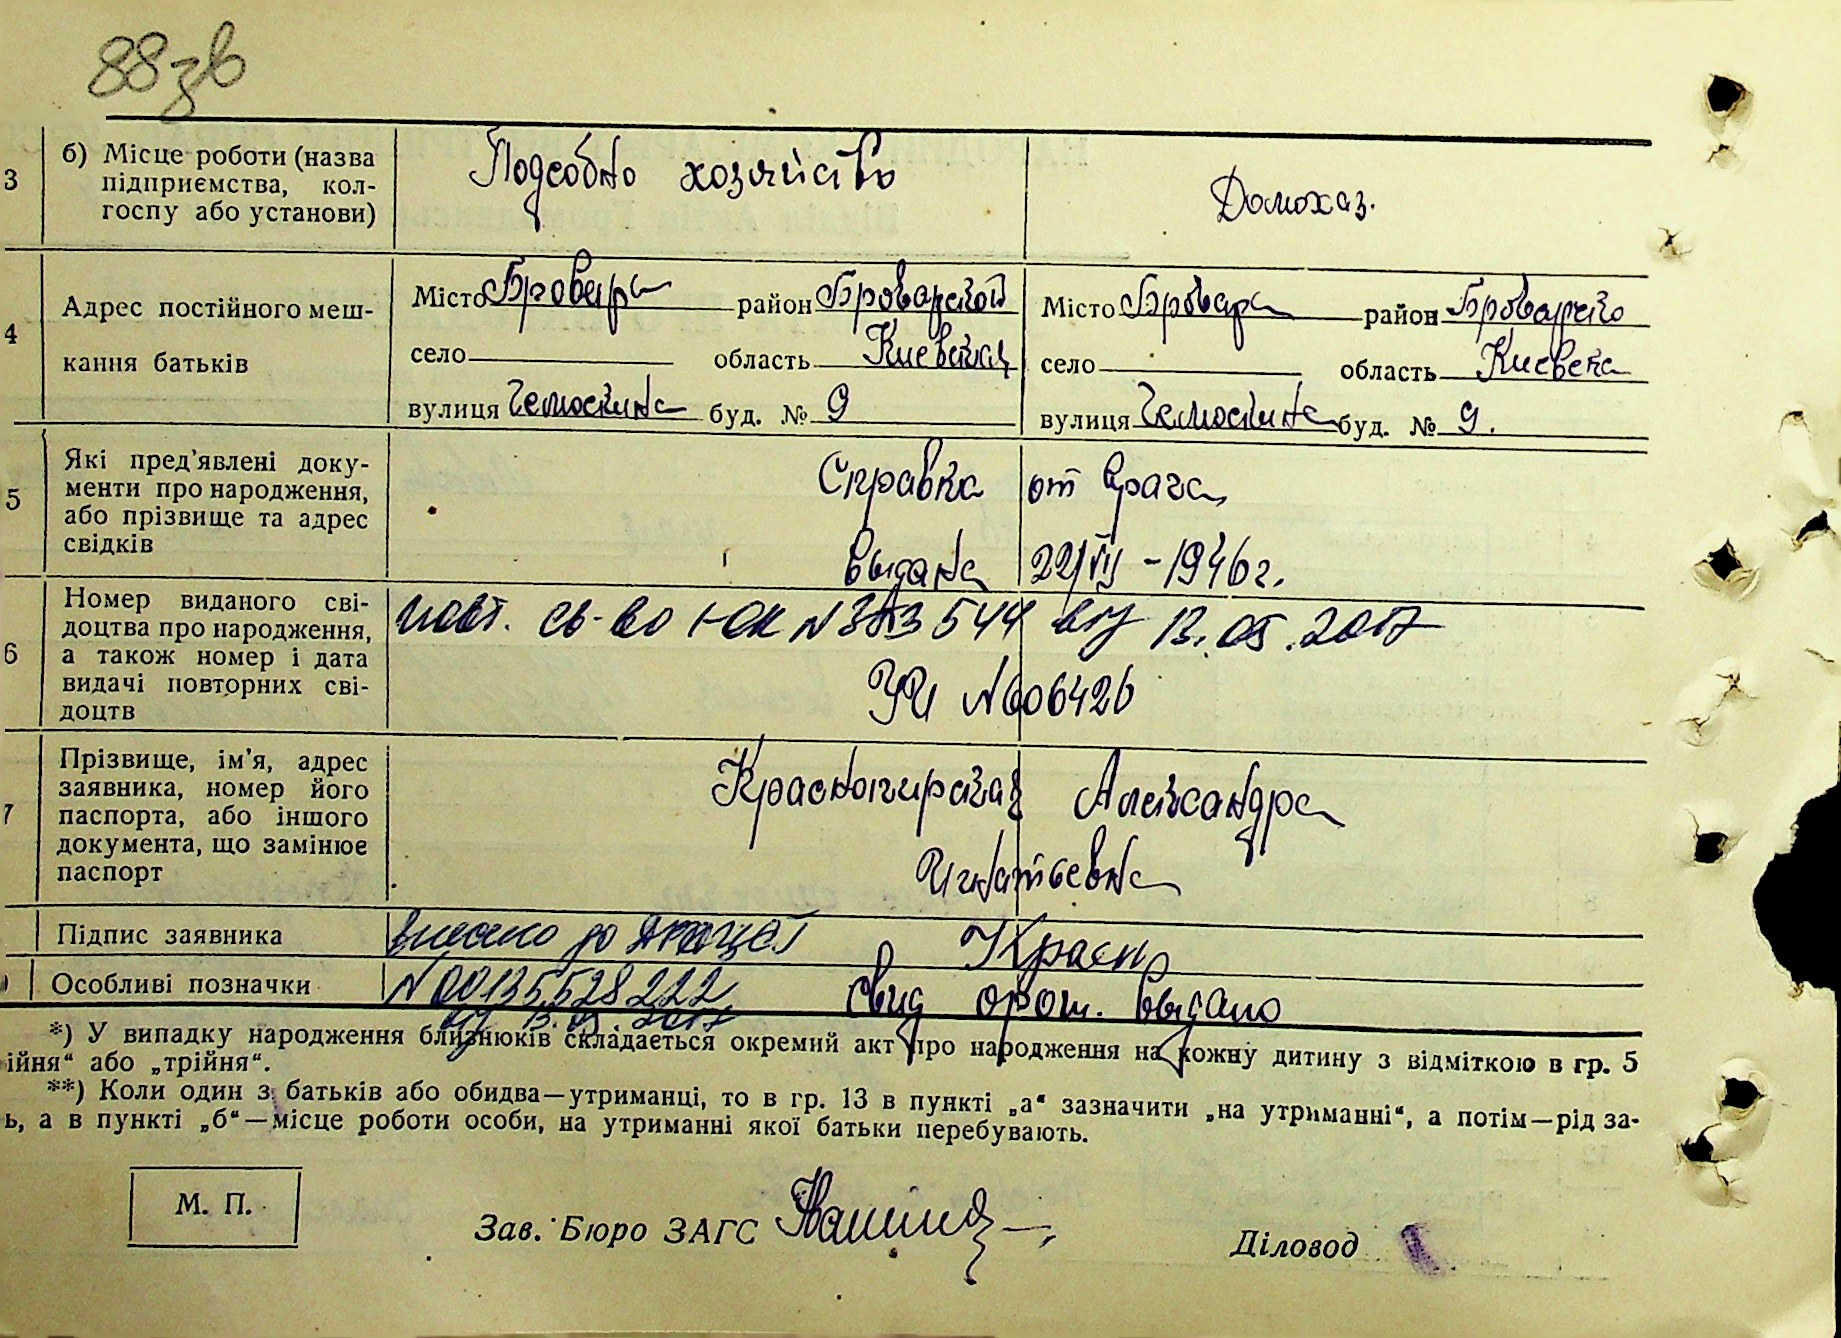 88зв
3
б) Місце роботи (назва
підприємства, кол-
госпу або установи)
Подсобно хозяйство
Домохаз.
4
Адрес постійного меш-
кання батьків
Місто Бровара район Броварской
село область Киевская
вулиця Челюскина буд. № 9
Місто Бровара район Броварско
село область Киевска
вулиця Челюскина буд. № 9.
5
Які пред'явлені доку-
менти про народження,
або прізвище та адрес
свідків
Справка от врача
выдана 22/VII - 1946 г.
6
Номер виданого сві-
доцтва про народження,
а також номер і дата
видачі повторних сві-
доцтв
повт. св-во І-ОК від 13.05.2017
№ 606426
7
Прізвище, ім'я, адрес
заявника, номер його
паспорта, або іншого
документа, що замінює
паспорт
Александра
Игнатьевна
Підпис заявника
внесено до
Красн
Особливі позначки
N 00135528222
від 13.05.2017
свид выдано
*) У випадку народження близнюків складається окремий акт про народження на кожну дитину з відміткою в гр. 5
ійня“ або „трійня“.
**) Коли один з батьків або обидва—утриманці, то в гр. 13 в пункті „а“ зазначити „на утриманні“, а потім—рід за-
ь, а в пункті „б“—місце роботи особи, на утриманні якої батьки перебувають.
М. П.
Зав. Бюро ЗАГС
Діловод